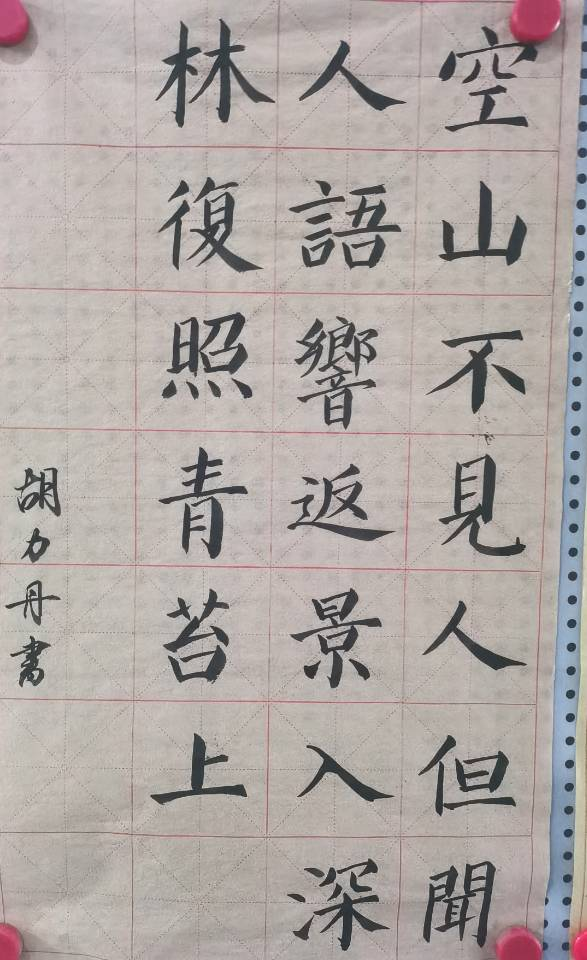 空山不見人但聞
人語響返景入深
林復照青苔上
胡力丹書